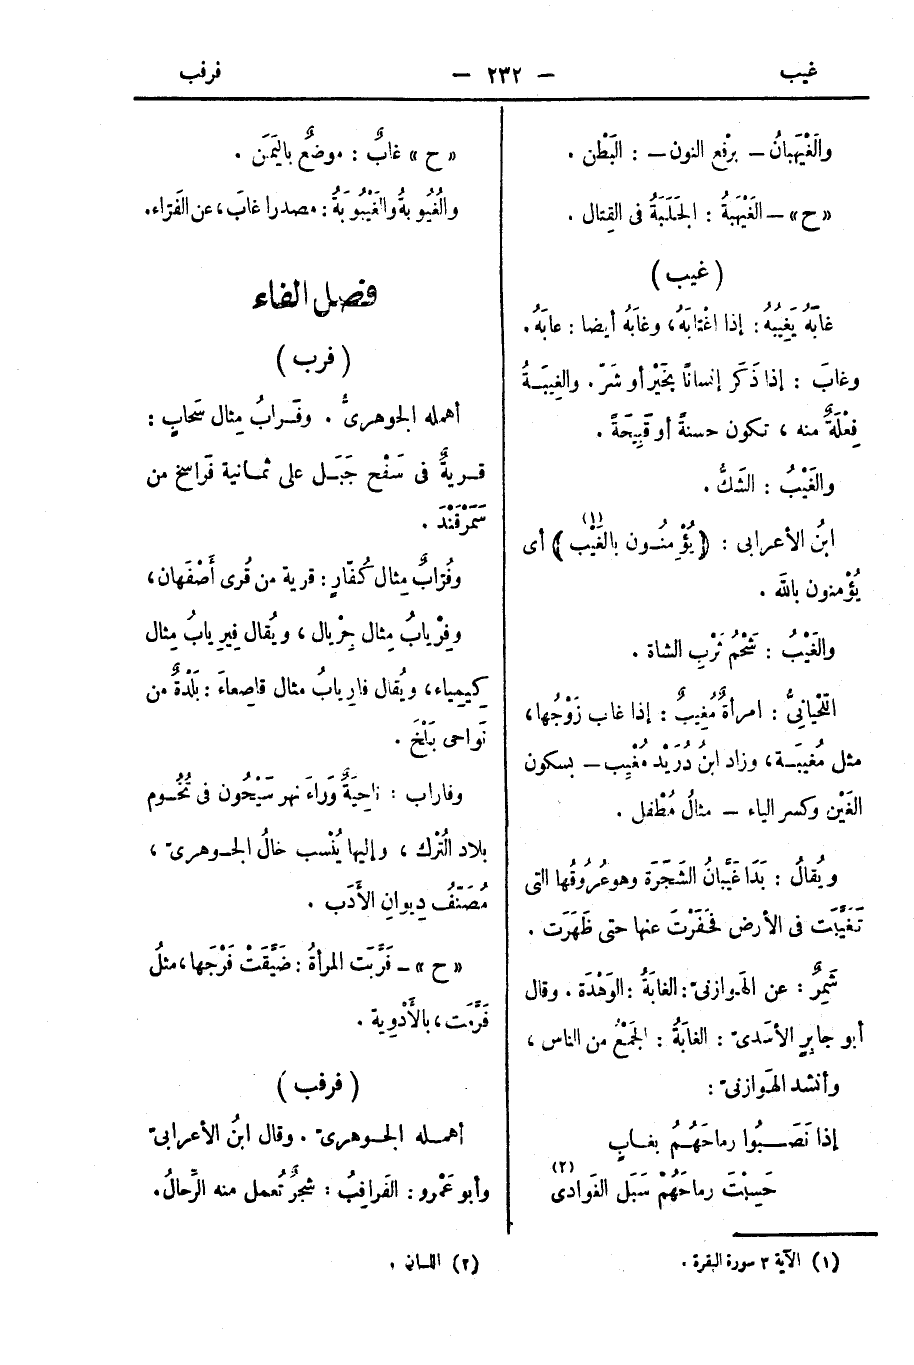 غيب — ٢٣٢ — فرقب
والغَيْهَبانُ – برفْع النون – : البَطْن .
« ح » – الغَيْهبةُ : الجَلَبَةُ فى القِتال .
( غيب )
غابَهُ يَغِيبُهُ : إذا اغْتابَهُ ، وغابَهُ أيضا : عابَهُ .
وغابَ : إذا ذَكَر إنسانًا بخَيْر أو شَرّ . والغِيبَةُ
فِعْلَةٌ منه ، تكون حسنةً أو قَبِيحَةً .
والغَيْبُ : الشَكُّ .
ابنُ الأعرابى : ﴿ يُؤْمِنُون بالغَيْب ﴾ (١) أى
يُؤْمنون بالله .
والغَيْبُ : شَحْمُ ثَرْبِ الشاة .
اللّحيانِىُّ : امرأةٌ مُغِيبٌ : إذا غاب زَوْجُها ،
مثل مُغِيبَة ، وزاد ابنُ دُرَيْد مُغْيِب – بسكون
الغَيْن وكسر الياء – مثالُ مُطْفل .
ويُقالُ : بَدَا غَيَّبانُ الشَجَرَة وهو عُرُوقُها التى
تَغَيَّبَت فى الأرض فحَفَرْتَ عنها حتى ظَهَرَت .
شَمِرٌ : عن الهَوازنىّ : الغابَةُ : الوَهْدَة . وقال
أبو جابرٍ الأسَدىّ : الغابَةُ : الجَمْعُ من الناس ،
وأنشد الهَوازنىّ :
إذا نَصَبُوا رماحَهُمُ بغابٍ
حَسِبْتَ رماحَهُمْ سَبَل الغَوادى (٢)
« ح » غابٌ : موضعٌ باليَمَن .
والغُيُوبةُ والغَيْبُوبَةُ : مصدرا غابَ ، عن الفَرّاء .
فصل الفاء
( فرب )
أهمله الجوهرىُّ . وفَرابُ مِثال سَحابٍ :
قريةٌ فى سَفْح جَبَل على ثمانية فَراسخ من
سَمَرْقَنْدَ .
وفُرّابٌ مِثال كُفّارٍ : قرية من قُرى أَصْفَهان ،
وفِرْيابُ مِثال جِرْيال ، ويُقال فِيرِيابُ مِثال
كِيمِياء ، ويُقال فارِيابُ مثال قاصِعاءَ : بَلْدَةٌ من
نَواحى بَلْخَ .
وفاراب : ناحِيَةٌ وَراءَ نهر سَيْحُون فى تُخُوم
بلاد التُرْك ، وإليها يُنْسب خالُ الجوهرىّ ،
مُصَنِّفُ دِيوانِ الأَدَب .
« ح » – فَرَّبَت المرأةُ : ضَيَّقَتْ فَرْجَها ، مثلُ
فَرَّمَت ، بالأَدْوِية .
( فرقب )
أهمله الجوهرىّ . وقال ابنُ الأعرابىّ
وأبو عَمْرو : الفَراقِبُ : شجرٌ تُعمل منه الرِّحالُ .
(١) الآية ٣ سورة البقرة .
(٢) اللسان .